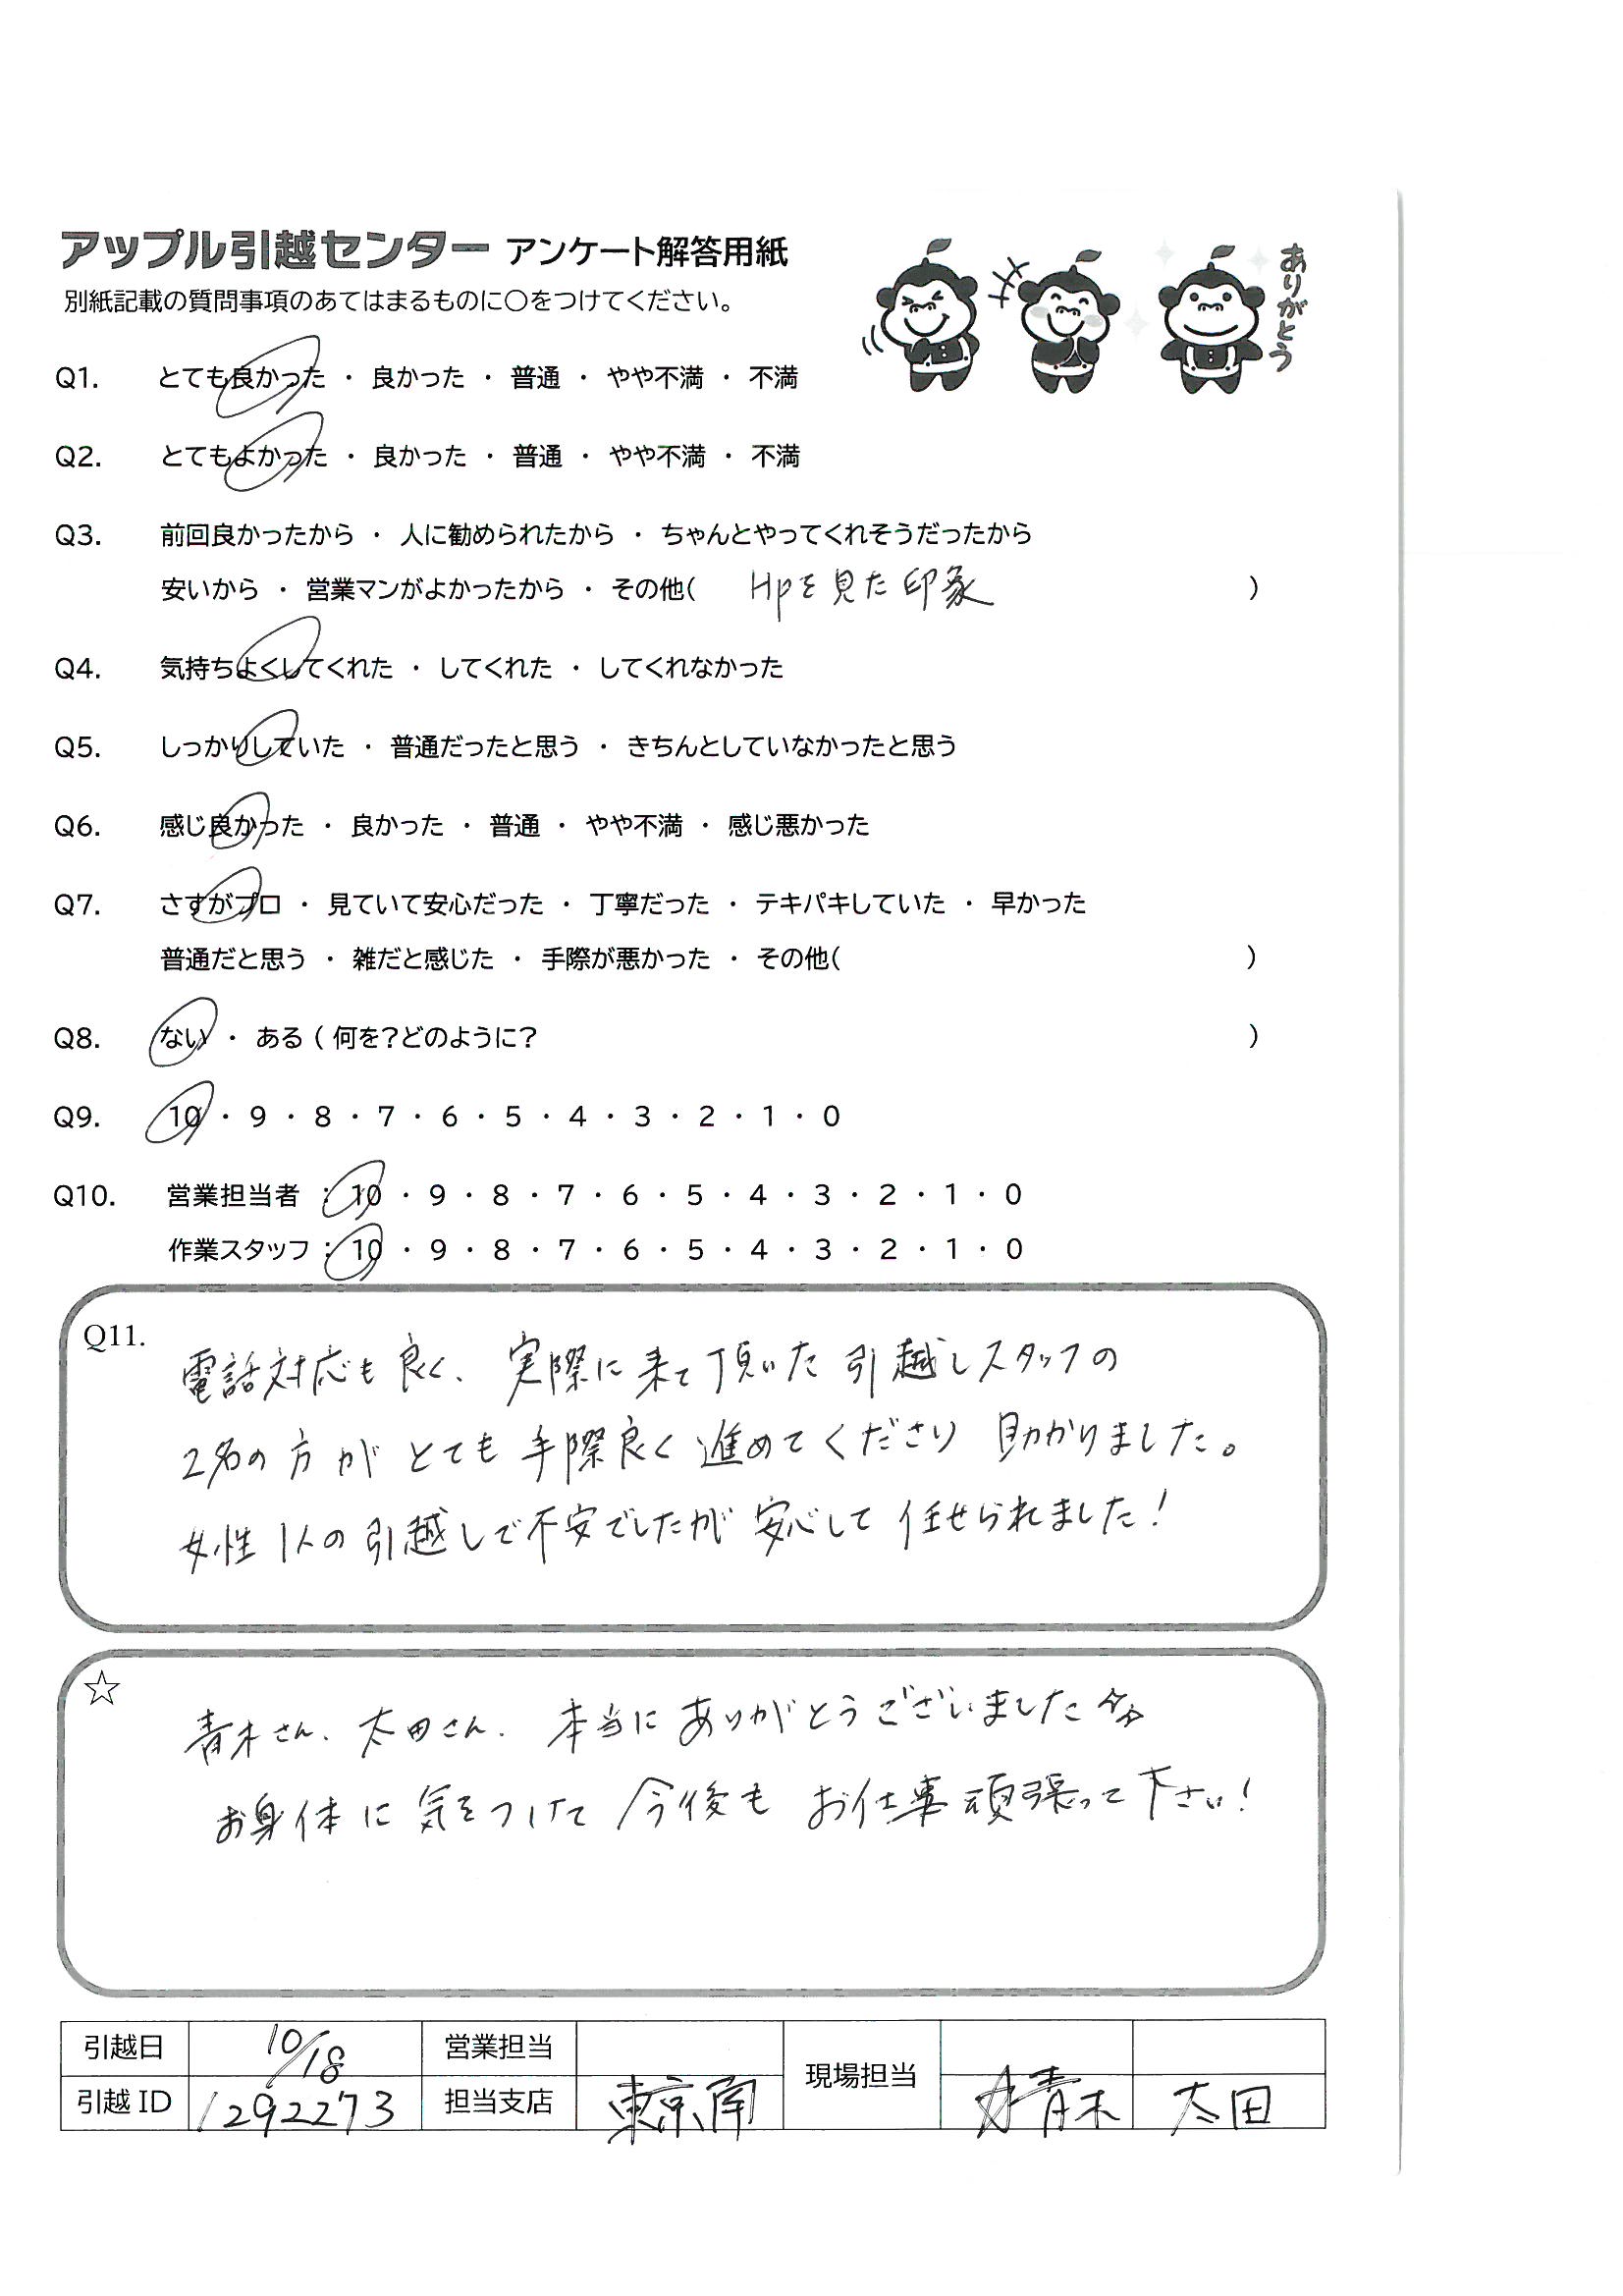 アップル引越センター アンケート解答用紙
別紙記載の質問事項のあてはまるものに○をつけてください。
ありがとう
Q1. とても良かった ・ 良かった ・ 普通 ・ やや不満 ・ 不満
Q2. とてもよかった ・ 良かった ・ 普通 ・ やや不満 ・ 不満
Q3. 前回良かったから ・ 人に勧められたから ・ ちゃんとやってくれそうだったから
安いから ・ 営業マンがよかったから ・ その他( Hpを見た印象 )
Q4. 気持ちよくしてくれた ・ してくれた ・ してくれなかった
Q5. しっかりしていた ・ 普通だったと思う ・ きちんとしていなかったと思う
Q6. 感じ良かった ・ 良かった ・ 普通 ・ やや不満 ・ 感じ悪かった
Q7. さすがプロ ・ 見ていて安心だった ・ 丁寧だった ・ テキパキしていた ・ 早かった
普通だと思う ・ 雑だと感じた ・ 手際が悪かった ・ その他( )
Q8. ない ・ ある ( 何を?どのように? )
Q9. 10 ・ 9 ・ 8 ・ 7 ・ 6 ・ 5 ・ 4 ・ 3 ・ 2 ・ 1 ・ 0
Q10. 営業担当者 : 10 ・ 9 ・ 8 ・ 7 ・ 6 ・ 5 ・ 4 ・ 3 ・ 2 ・ 1 ・ 0
作業スタッフ : 10 ・ 9 ・ 8 ・ 7 ・ 6 ・ 5 ・ 4 ・ 3 ・ 2 ・ 1 ・ 0
Q11.
電話対応も良く、実際に来て頂いた引越しスタッフの
2名の方がとても手際良く進めてくださり 助かりました。
女性1人の引越しで不安でしたが安心して任せられました!
☆
青木さん、太田さん、本当にありがとうございました☆☆
お身体に気をつけて今後もお仕事頑張って下さい!
引越日 10/18 営業担当 現場担当
引越ID 1292273 担当支店 東京南 青木 太田